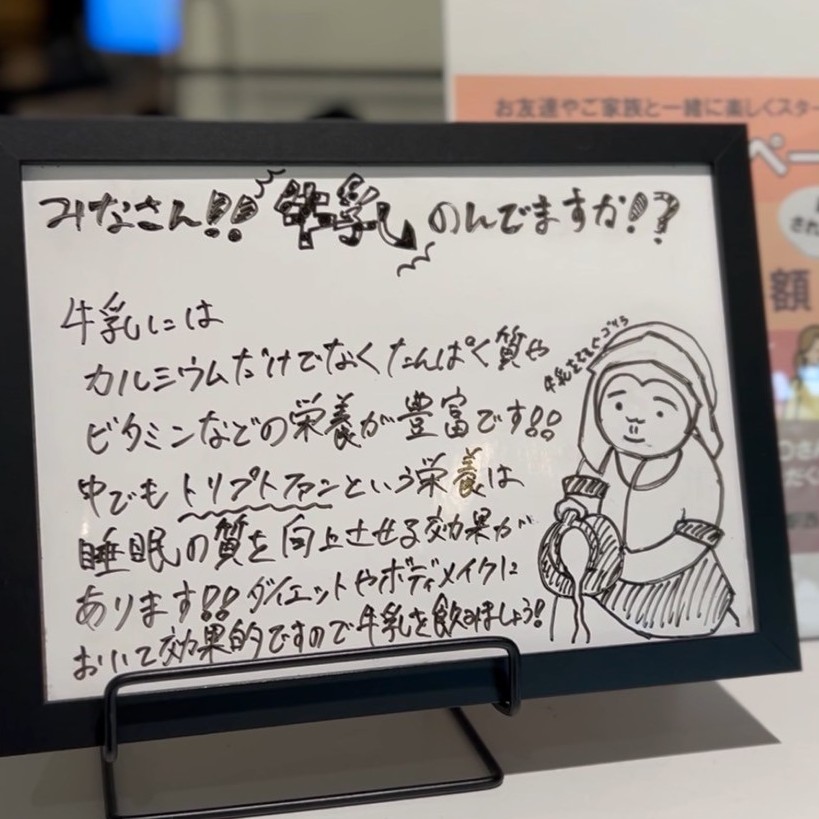 お友達やご家族と一緒に楽しくスター
ペー
額
みなさん!! 牛乳のんでますか!?
牛乳には
カルシウムだけでなくたんぱく質や
ビタミンなどの栄養が豊富です!!
中でもトリプトファンという栄養は
睡眠の質を向上させる効果が
あります!! ダイエットやボディメイクに
おいて効果的ですので牛乳を飲みましょう!
牛乳をそそぐゴリラ